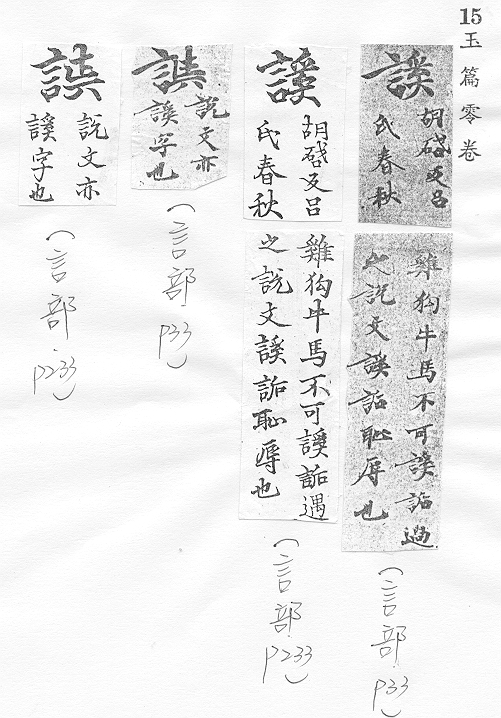 15玉篇零卷
謑
胡𧫚反呂
氏春秋
雞狗牛馬不可謑詬過
之說文謑詬恥辱也
(言部 p33)
謑
胡𧫚反呂
氏春秋
雞狗牛馬不可謑詬遇
之説文謑詬恥辱也
(言部 p233)
說文亦
謑字也
(言部 p33)
説文亦
謑字也
(言部 p233)